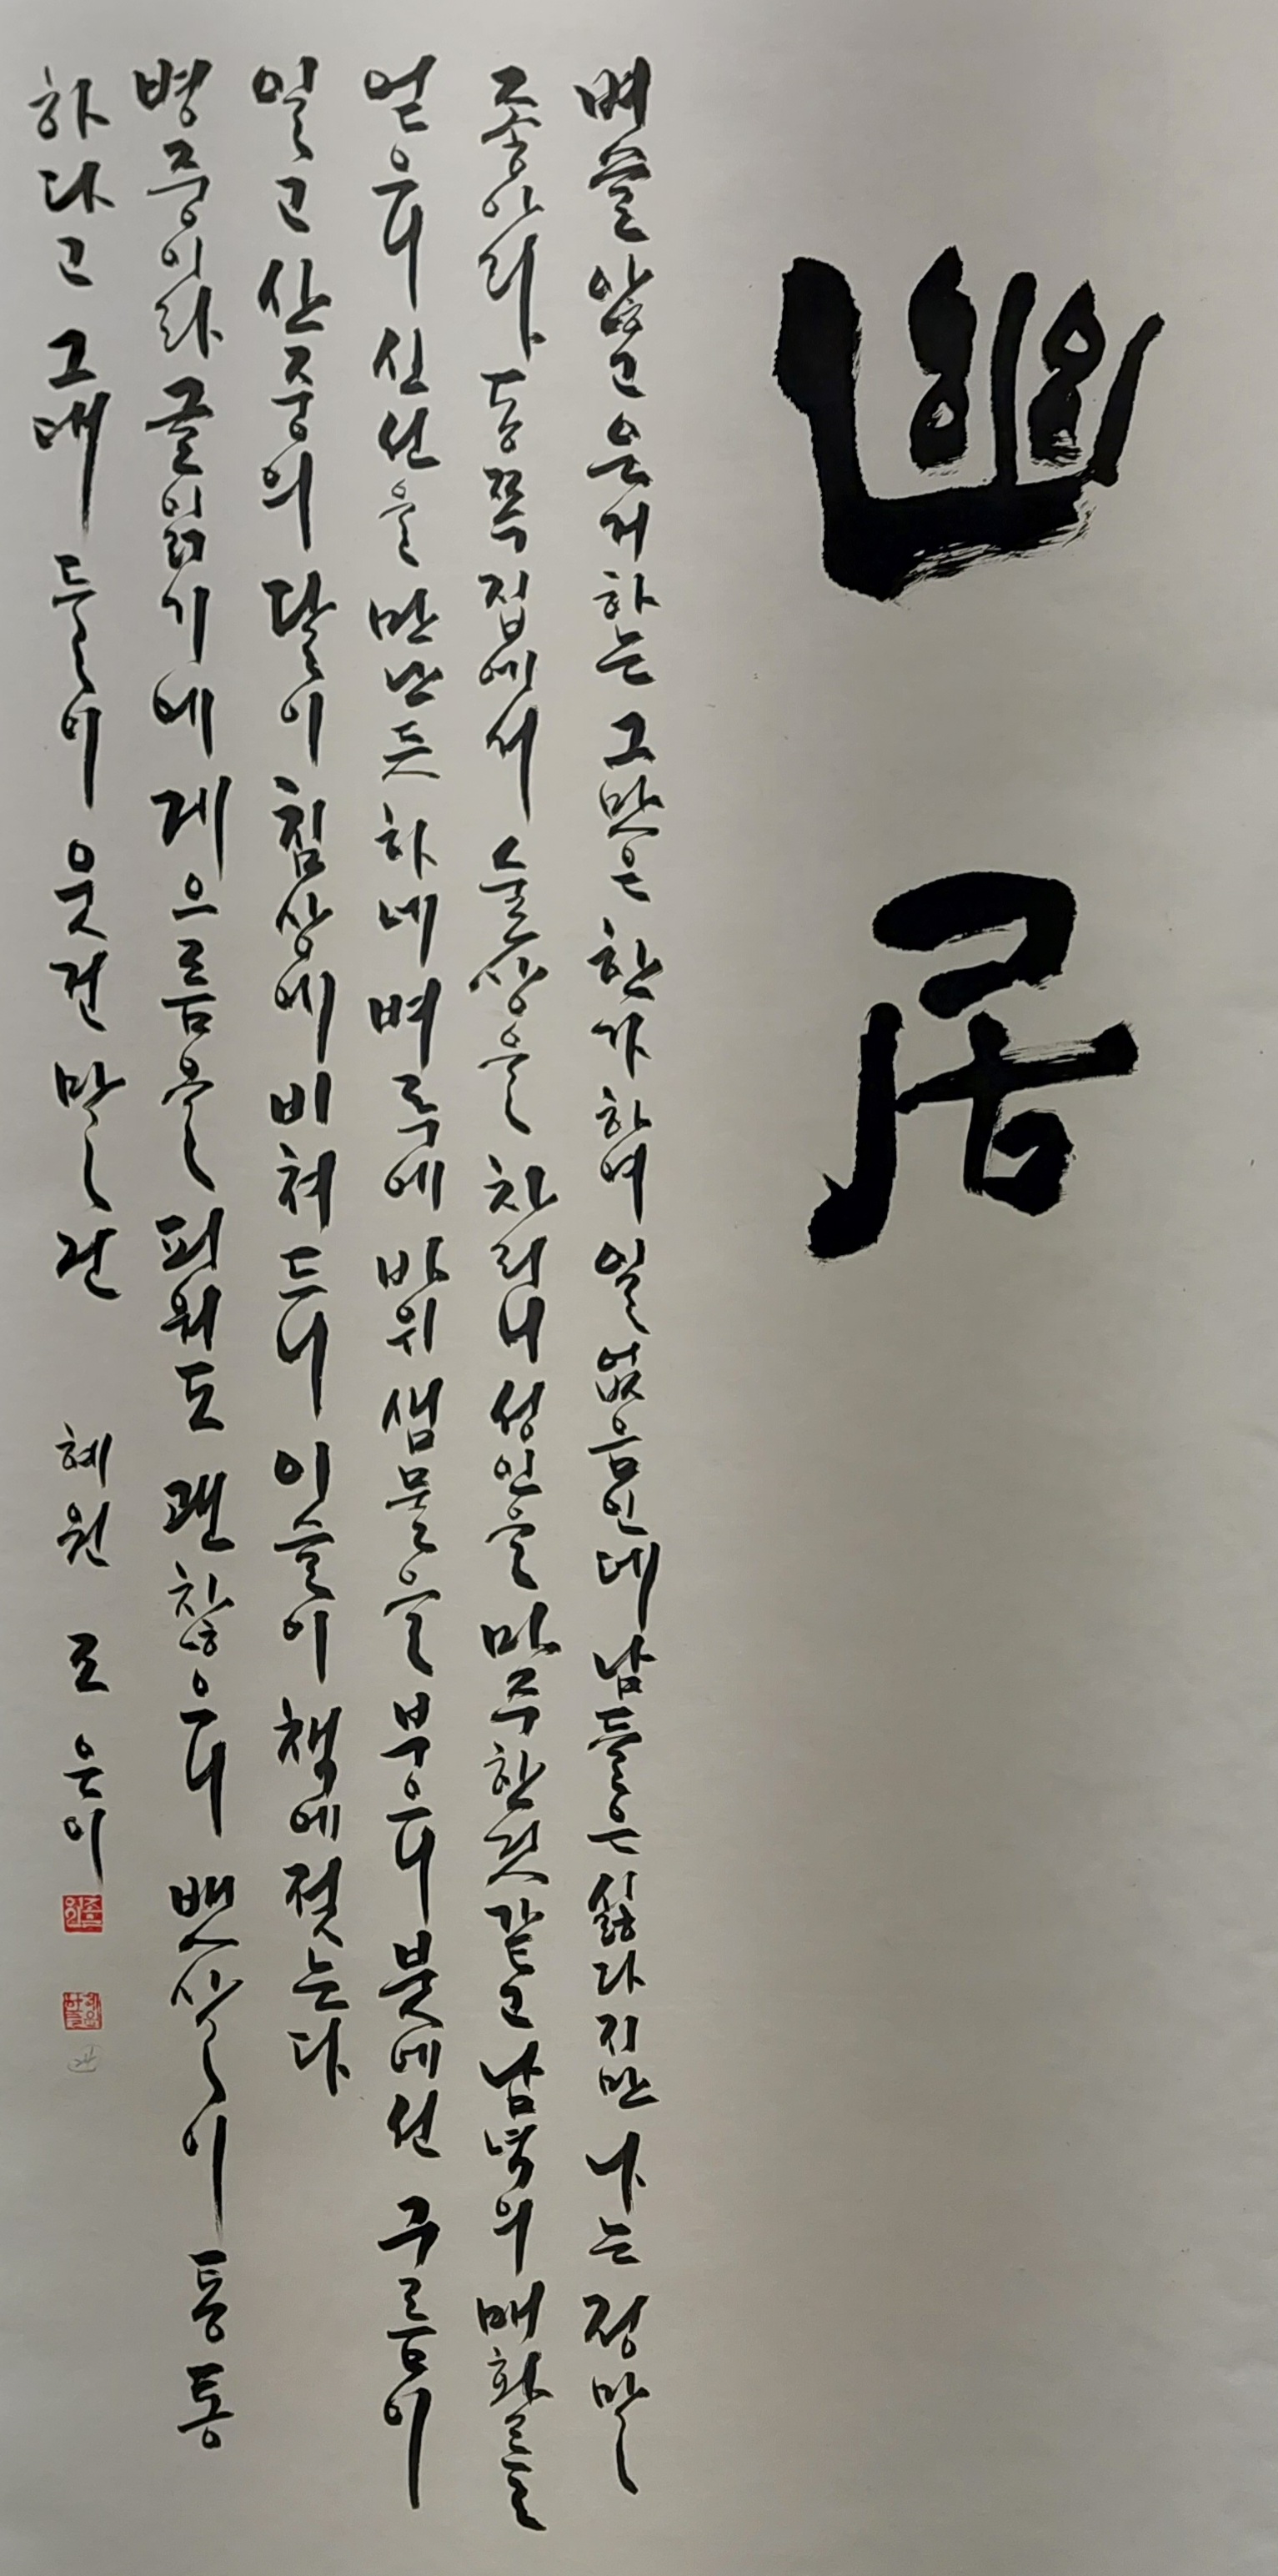 幽居
벼슬 않고 은거하는 그 맛은 한가하며 일 없음인데 남들은 싫다지만 나는 정말
좋아라 동쪽 집에서 술상을 차리니 성인을 마주한 것 같고 남녘의 매화를
얻으니 신선을 만난 듯 하네 벼루에 바위 샘물을 부으니 붓에선 구름이
일고 산중의 달이 침상에 비쳐드니 이슬이 책에 젖는다
병중이라 글 읽기에 게으름을 피워도 괜찮으니 뱃살이 통통
하다고 그대들이 웃건 말건 혜원 조은이